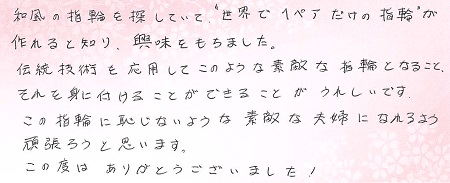 和風の指輪を探していて、"世界で1ペアだけの指輪"が
作れると知り、興味をもちました。
伝統技術を応用してこのような素敵な指輪となること、
それを身に付けることができることが うれしいです。
この指輪に恥じないような素敵な夫婦になれるよう
頑張ろうと思います。
この度は ありがとうございました!